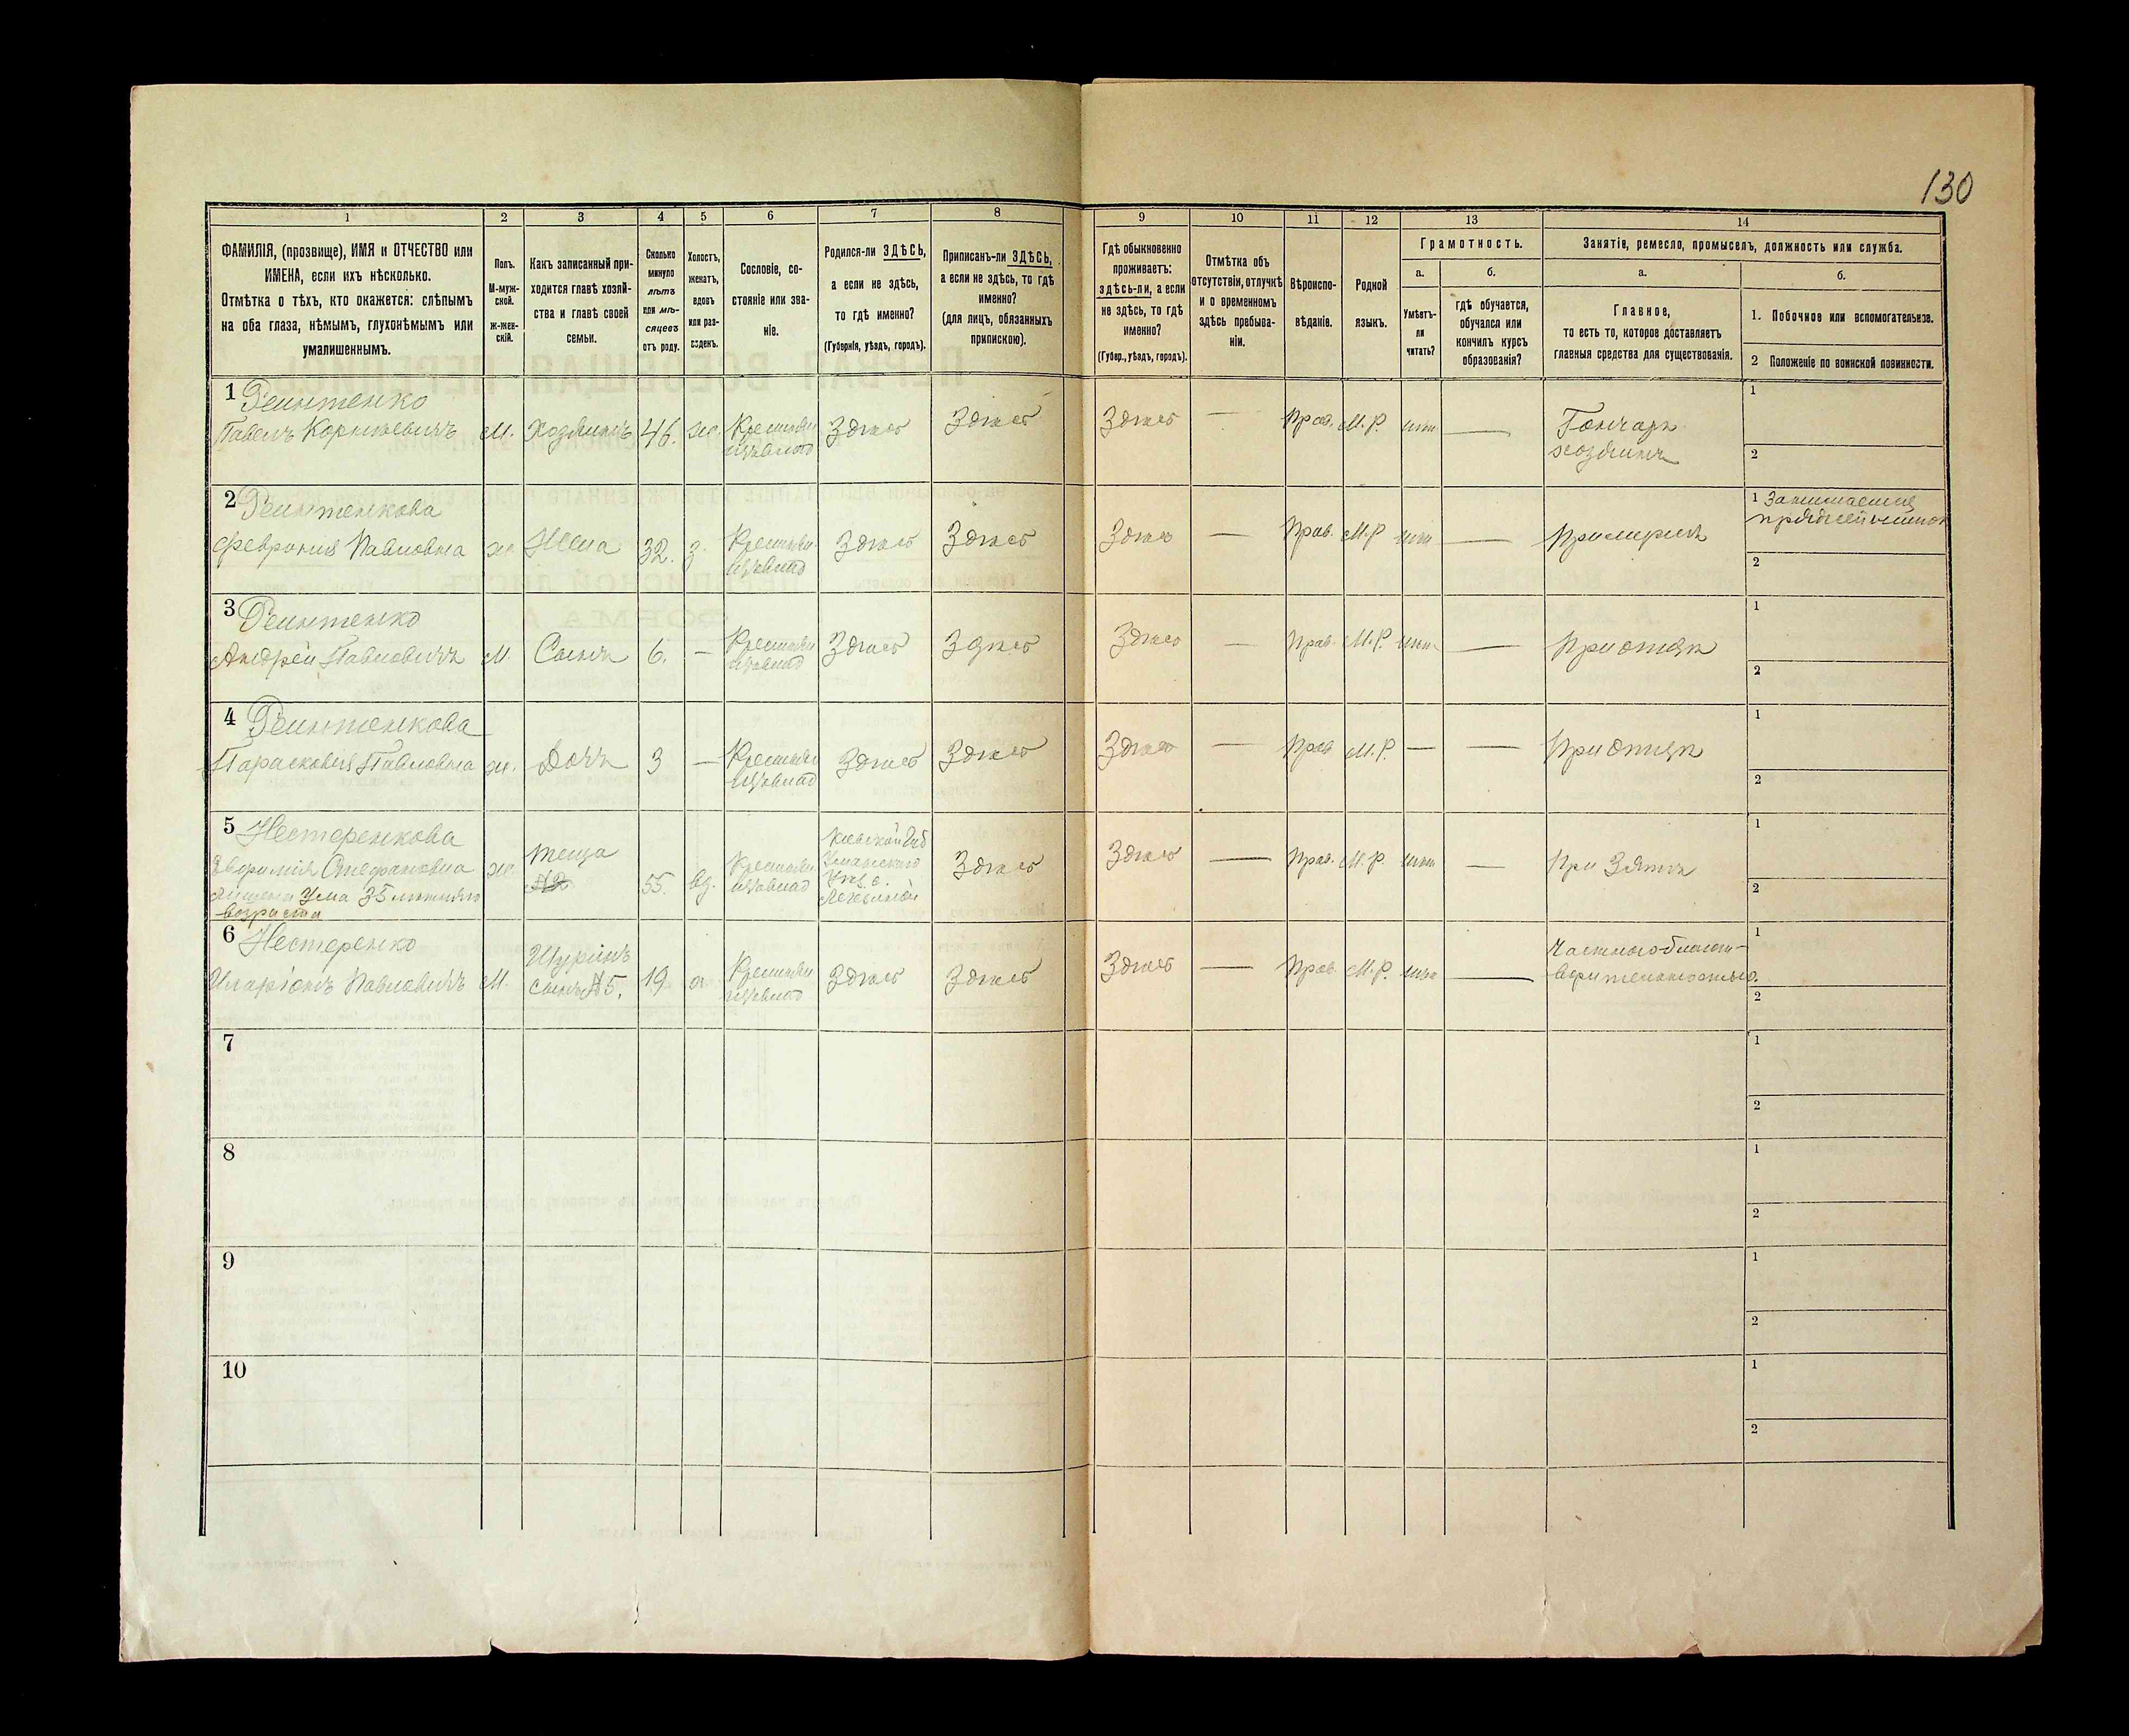 130
1 2 3 4 5 6 7 8 9 10 11 12 13 14
ФАМИЛІЯ, (прозвище), ИМЯ и ОТЧЕСТВО или
ИМЕНА, если ихъ нѣсколько.
Отмѣтка о тѣхъ, кто окажется: слѣпымъ
на оба глаза, нѣмымъ, глухонѣмымъ или
умалишеннымъ.
Полъ.
М-муж-
ской.
ж-жен-
скій.
Какъ записанный при-
ходится главѣ хозяй-
ства и главѣ своей
семьи.
Сколько
минуло
лѣтъ
или мѣ-
сяцевъ
отъ роду.
Холостъ,
женатъ,
вдовъ
или раз-
веденъ.
Сословіе, со-
стояніе или зва-
ніе.
Родился-ли ЗДѢСЬ,
а если не здѣсь,
то гдѣ именно?
(Губернія, уѣздъ, городъ).
Приписанъ-ли ЗДѢСЬ,
а если не здѣсь, то гдѣ
именно?
(для лицъ, обязанныхъ
припискою).
Гдѣ обыкновенно
проживаетъ:
здѣсь-ли, а если
не здѣсь, то гдѣ
именно?
(Губер., уѣздъ, городъ).
Отмѣтка объ
отсутствіи, отлучкѣ
и о временномъ
здѣсь пребыва-
ніи.
Вѣроиспо-
вѣданіе.
Родной
языкъ.
Грамотность.
а.
Умѣетъ-
ли
читать?
б.
гдѣ обучается,
обучался или
кончилъ курсъ
образованія?
Занятіе, ремесло, промыселъ, должность или служба.
а.
Главное,
то есть то, которое доставляетъ
главныя средства для существованія.
б.
1. Побочное или вспомогательное.
2 Положеніе по воинской повинности.
1
Павелъ Корнѣевичъ М. Хозяинъ 46. ж. Здѣсь Здѣсь Здѣсь — Прав. М.Р. нѣт — Гончаръ
хозяинъ
1
2
2
Февронія Павловна ж. Жена 32. з. Здѣсь Здѣсь Здѣсь — Прав. М.Р. нѣт — При мужѣ
1 Занимается
2
3
Андрей Павловичъ М. Сынъ 6. — Здѣсь Здѣсь Здѣсь — Прав. М.Р. нѣт — При отцѣ
1
2
4
Парасковія Павловна ж. Дочь 3 — Здѣсь Здѣсь Здѣсь — Прав. М.Р. — — При отцѣ
1
2
5 Нестеренкова
Евфимія Стефановна ж. теща 55. вд. Здѣсь Здѣсь — Прав. М.Р. нѣт — При Зятѣ
ума 35 лѣтняго
возраста
Кіевской Губ
Уманскаго
1
2
6 Нестеренко
Иларіонъ Павловичъ М. Шуринъ
сынъ №5. 19 х. Здѣсь Здѣсь Здѣсь — Прав. М.Р. нѣт — Частною благот-
ворительностью.
1
2
7
1
2
8
1
2
9
1
2
10
1
2